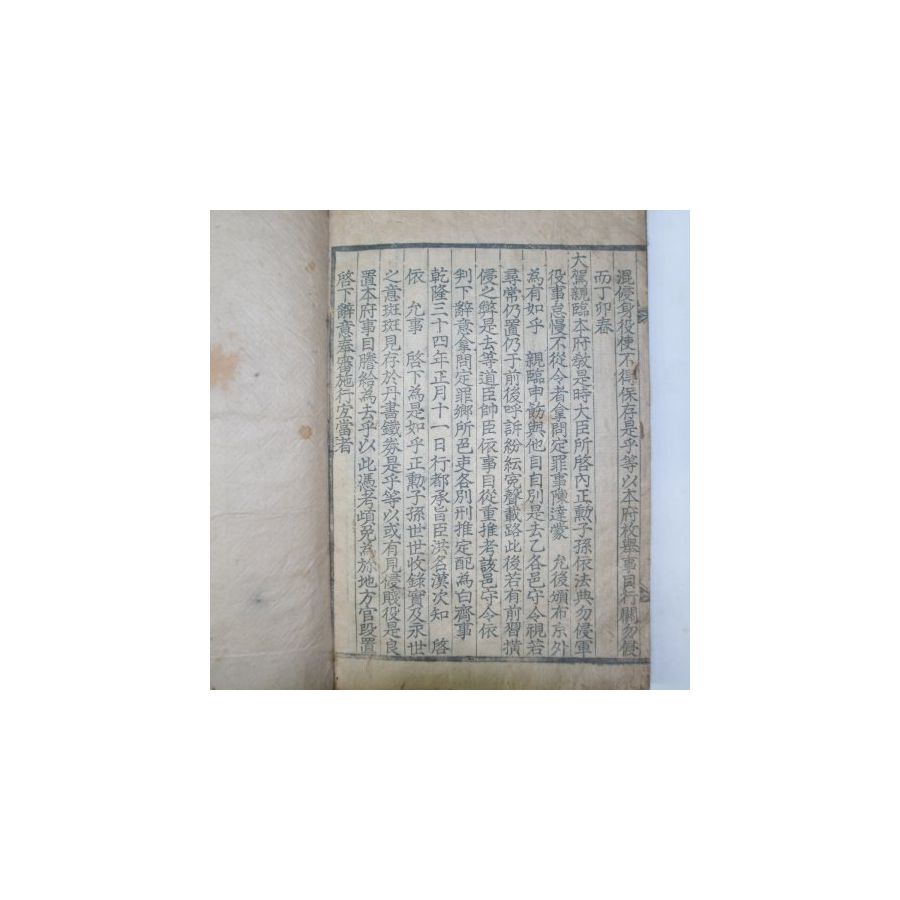 混侵身役使不得保存是乎等以本府枚擧事目行關勿侵
而丁卯春
大駕親臨本府敎是時大臣所啓內正勳子孫依法典勿侵軍
役事怠慢不從令者拿問定罪事陳達蒙 允後頒布京外
為有如乎 親臨申飭與他目自別是去乙各邑守令視若
尋常仍置仍于前後呼訴紛紜寃聲載路此後若有前習橫
侵之弊是去等道臣帥臣依事目從重推考該邑守令依
判下辭意拿問定罪鄕所邑吏各別刑推定配為白齊事
乾隆三十四年正月十一日行都承旨臣洪名漢次知 啓
依 允事 啓下為是如乎正勳子孫世世收錄實及永世
之意斑斑見存於丹書鐵券是乎等以或有見侵賤役是良
置本府事目謄給為去乎以此憑考頉免為旀地方官段置
啓下辭意奉審施行宜當者